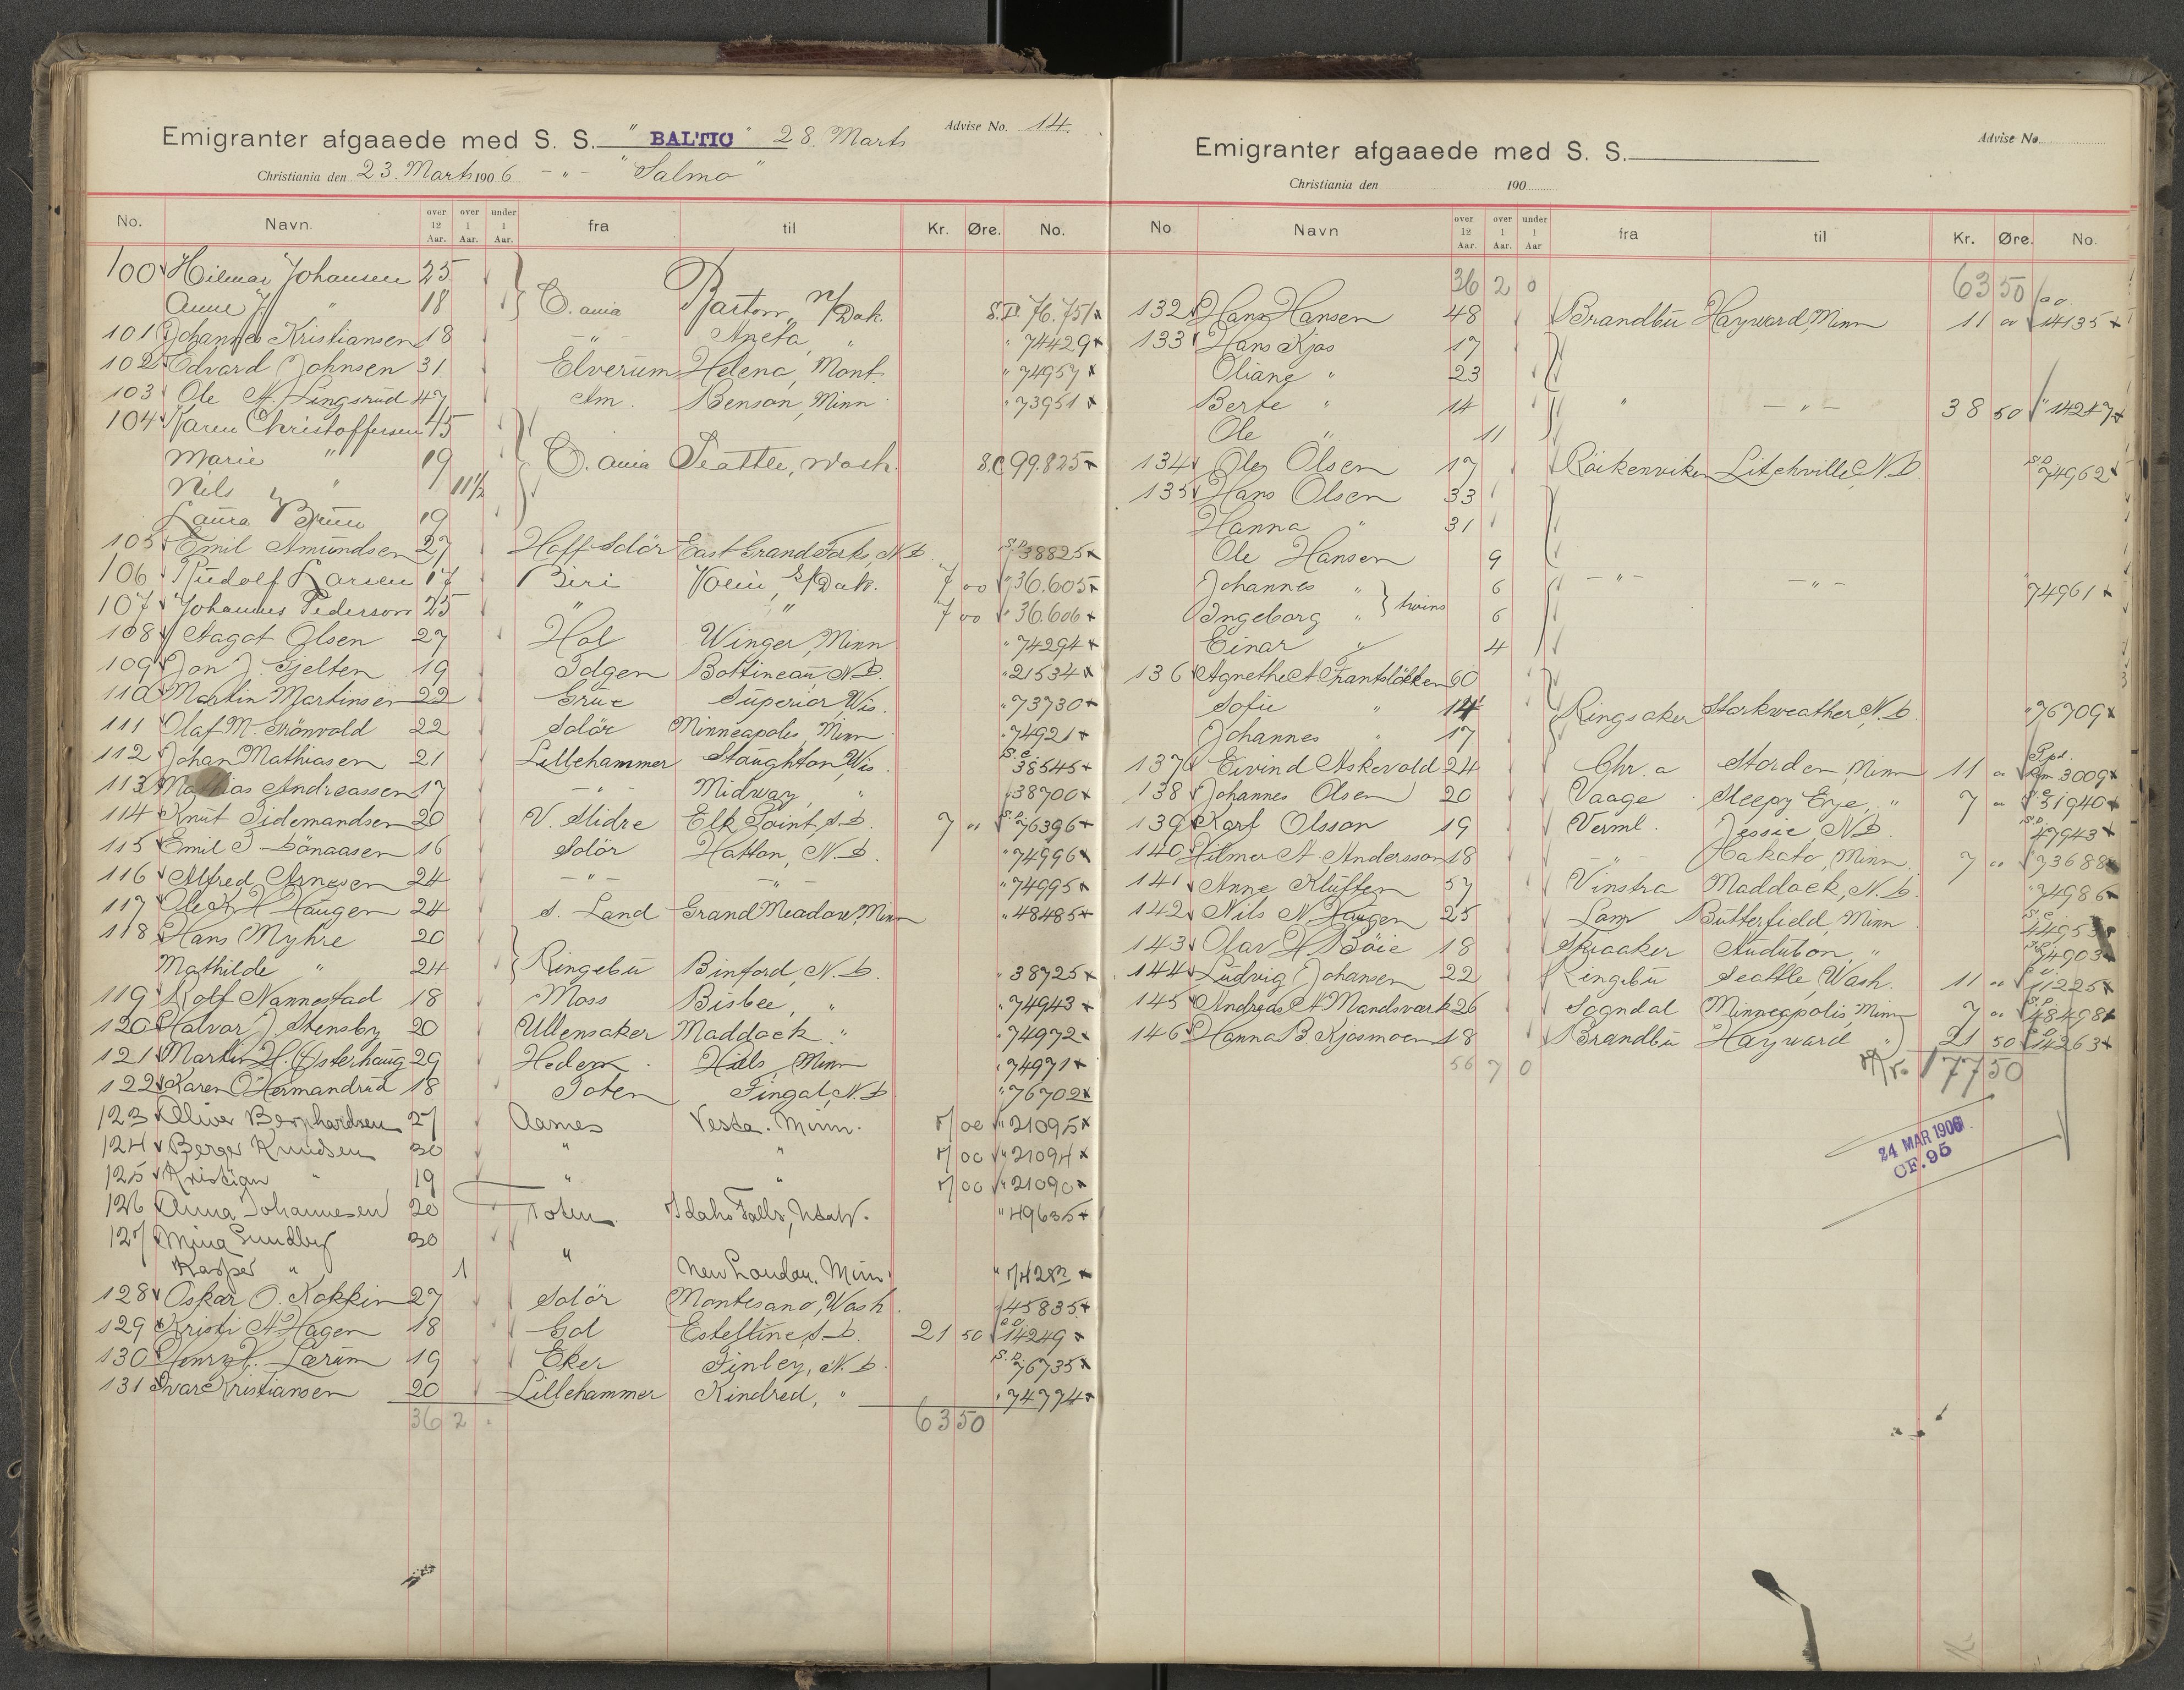 Emigranter afgaaede med S. S. " BALTIC " 28. Marts Advise No. 14.
Christiania den 23. Marts 1906 - " - "Salmo"
No. Navn. over 12 Aar. over 1 Aar. under 1 Aar. fra til Kr. Øre. No.
100 Hilmar Johansen 25
Anne J. " 18 C.ania Barton, N/Dak. S.P. 76.751
101 Johannes Kristiansen 18 - " - Aneta " " 74429
102 Edvard Johnsen 31 Elverum Helena, Mont. " 74957
103 Ole A. Lingsrud 47 Am. Benson, Minn " 73951
104 Karen Christoffersen 45
Marie " 19 C.ania Seattle, Wash. S.C 99.825
Nils " 11 1/2
Laura Bruu 19
105 Emil Amundsen 27 Hoff Solör East Grand Forks, N.D. S.P. 38825
106 Rudolf Larsen 17 Biri Volin, S/Dak. 7 00 " 36.605
107 Johannes Pederson 25 " " 7 00 " 36.606
108 Aagot Olsen 27 Hol Winger, Minn " 74294
109 Jon J. Gjelten 19 Tolgen Bottineau, N.D. " 21534
110 Martin Martinsen 22 Grue Superior Wis. " 73730
111 Olaf M. Grönvold 22 Solör Minneapolis, Minn " 74921
112 Johan Mathiasen 21 Lillehammer Stoughton, Wis. S.C. 38545
113 Mathias Andreassen 17 - " - Midway, " " 38700
114 Knut Tidemandsen 20 V. Slidre Elk Point, S.D. 7 " S.P. 76396
115 Emil J. Bönaasen 16 Solör Hatton, N.D. " 74996
116 Alfred Arnesen 24 - " - - " - " 74995
117 Ole A. H. Haugen 24 S. Land Grand Meadow, Minn " 48485
118 Hans Myhre 20
Mathilde " 24 Ringebu Binford, N.D. " 38725
119 Rolf Nannestad 18 Moss Bisbee, " " 74943
120 Halvar J. Stensby 20 Ullensaker Maddock " " 74972
121 Martin H. Østerhaug 29 Hedem. Hills, Minn " 74971
122 Karen O. Hermandrud 18 Toten Fingal, N.D. " 76702
123 Oliver Bernhardsen 27 Aarnes Vesta. Minn. 7 00 " 21095
124 Berger Knudsen 30 " " 7 00 " 21094
125 Kristian " 19 " " 7 00 " 21090
126 Anna Johannesen 20 Toten. Idaho Falls, Idaho. " 49635
127 Mina Lundby 30
Kasper " 1 " New London. Minn. " 7428
128 Oskar O. Kokkin 27 Solör Montesano, Wash. " 45835
129 Kristi A. Hagen 18 Gol Estelline, S.D. 21 50 C.O. 14249
130 Henry H. Lærum 19 Eker Finley, N.D. S.P. 76735
131 Ivar Kristiansen 20 Lillehammer Kindred, " " 74774
36 2 . 63 50
Emigranter afgaaede med S. S. Advise No.
Christiania den 190
No Navn over 12 Aar. over 1 Aar. under 1 Aar fra til Kr. Øre. No.
36 2 0 63 50
132 Hans Hansen 48 Brandbu Hayward, Minn 11 00 C.O. 14135
133 Hans Kjos 17
Oliane " 23
Berte " 14 " - " - 38 50 " 14247
Ole " 11
134 Ole Olsen 17 Röikenviken Litchville, N.D. S.P. 74962
135 Hans Olsen 33
Hanna " 31
Ole Hansen 9
Johannes " 6 - " - - " - " 74961
Ingeborg " } twins 6
Einar " 4
136 Agnethe A. Frantslökken 60
Sofie " 14 Ringsaker Starkweather, N.D. " 76709
Johannes " 17
137 Eivind Askevold 24 Chr. a Storden, Minn 11 " 3009
138 Johannes Olsen 20 Vaage Sleepy Eye, " 7 " S.C. 31940
139 Karl Olsson 19 Verml. Jessie, N.D. S.P. 47943
140 Hilmer A. Andersson 18 - " - Hakato, Minn. 7 " " 73688
141 Anne Kluften 57 Vinstra Maddock, N.D. " 74986
142 Nils N. Haugen 25 Lom Butterfield, Minn S.C. 44953
143 Olav H. Böie 18 Spraaker Audubon, " S.P. 74903
144 Ludvig Johansen 22 Ringebu Seattle, Wash. 11 " C.O. 11225
145 Andreas A. Mandsvark 26 Sogndal Minneapolis, Minn 7 " S.P. 48498
146 Hanna B. Kjosmoen 18 Brandbu Hayward " 21 50 C.O. 14263
56 7 0 177 50
24 MAR 1906
CF. 95